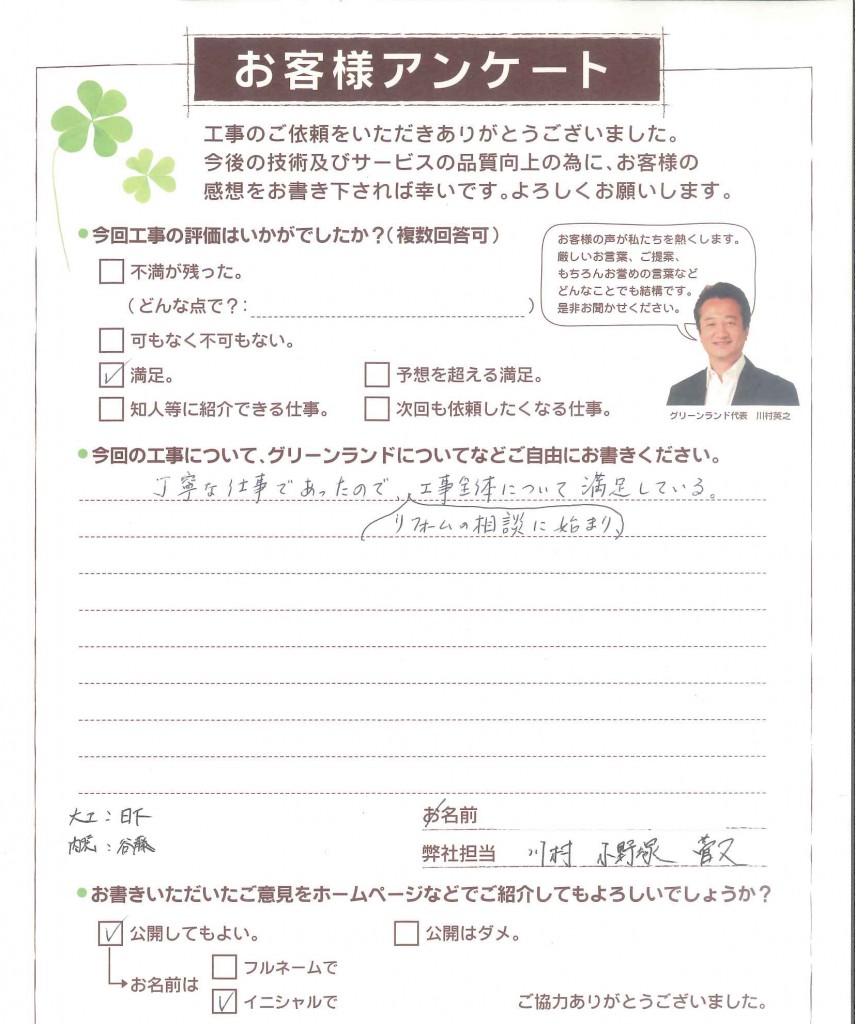 お客様アンケート
工事のご依頼をいただきありがとうございました。
今後の技術及びサービスの品質向上の為に、お客様の
感想をお書き下されば幸いです。よろしくお願いします。
●今回工事の評価はいかがでしたか？（複数回答可）
お客様の声が私たちを熱くします。
厳しいお言葉、ご提案、
もちろんお誉めの言葉など
どんなことでも結構です。
是非お聞かせください。
不満が残った。
（どんな点で？：　）
可もなく不可もない。
満足。
予想を超える満足。
知人等に紹介できる仕事。
次回も依頼したくなる仕事。
グリーンランド代表　川村英之
●今回の工事について、グリーンランドについてなどご自由にお書きください。
丁寧な仕事であったので、工事全体について満足している。
リフォームの相談に始まり、
大工：日下
内荒：谷藤
お名前
弊社担当　川村　小野塚　菅又
●お書きいただいたご意見をホームページなどでご紹介してもよろしいでしょうか？
公開してもよい。
公開はダメ。
お名前は
フルネームで
イニシャルで
ご協力ありがとうございました。